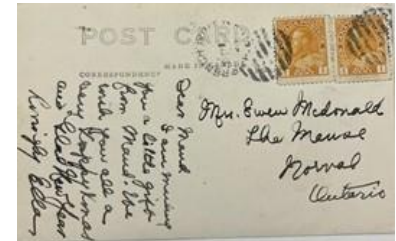 POST CARD
MADE IN
CORRESPONDENCE
Dear Maud
I am mixing
you a little gift
from Maud. We
wish you all a
very Happy Xmas
and Glad New Year
Lovingly Ella
Mrs. Ewen McDonald
The Manse
Norval
Ontario
1
1